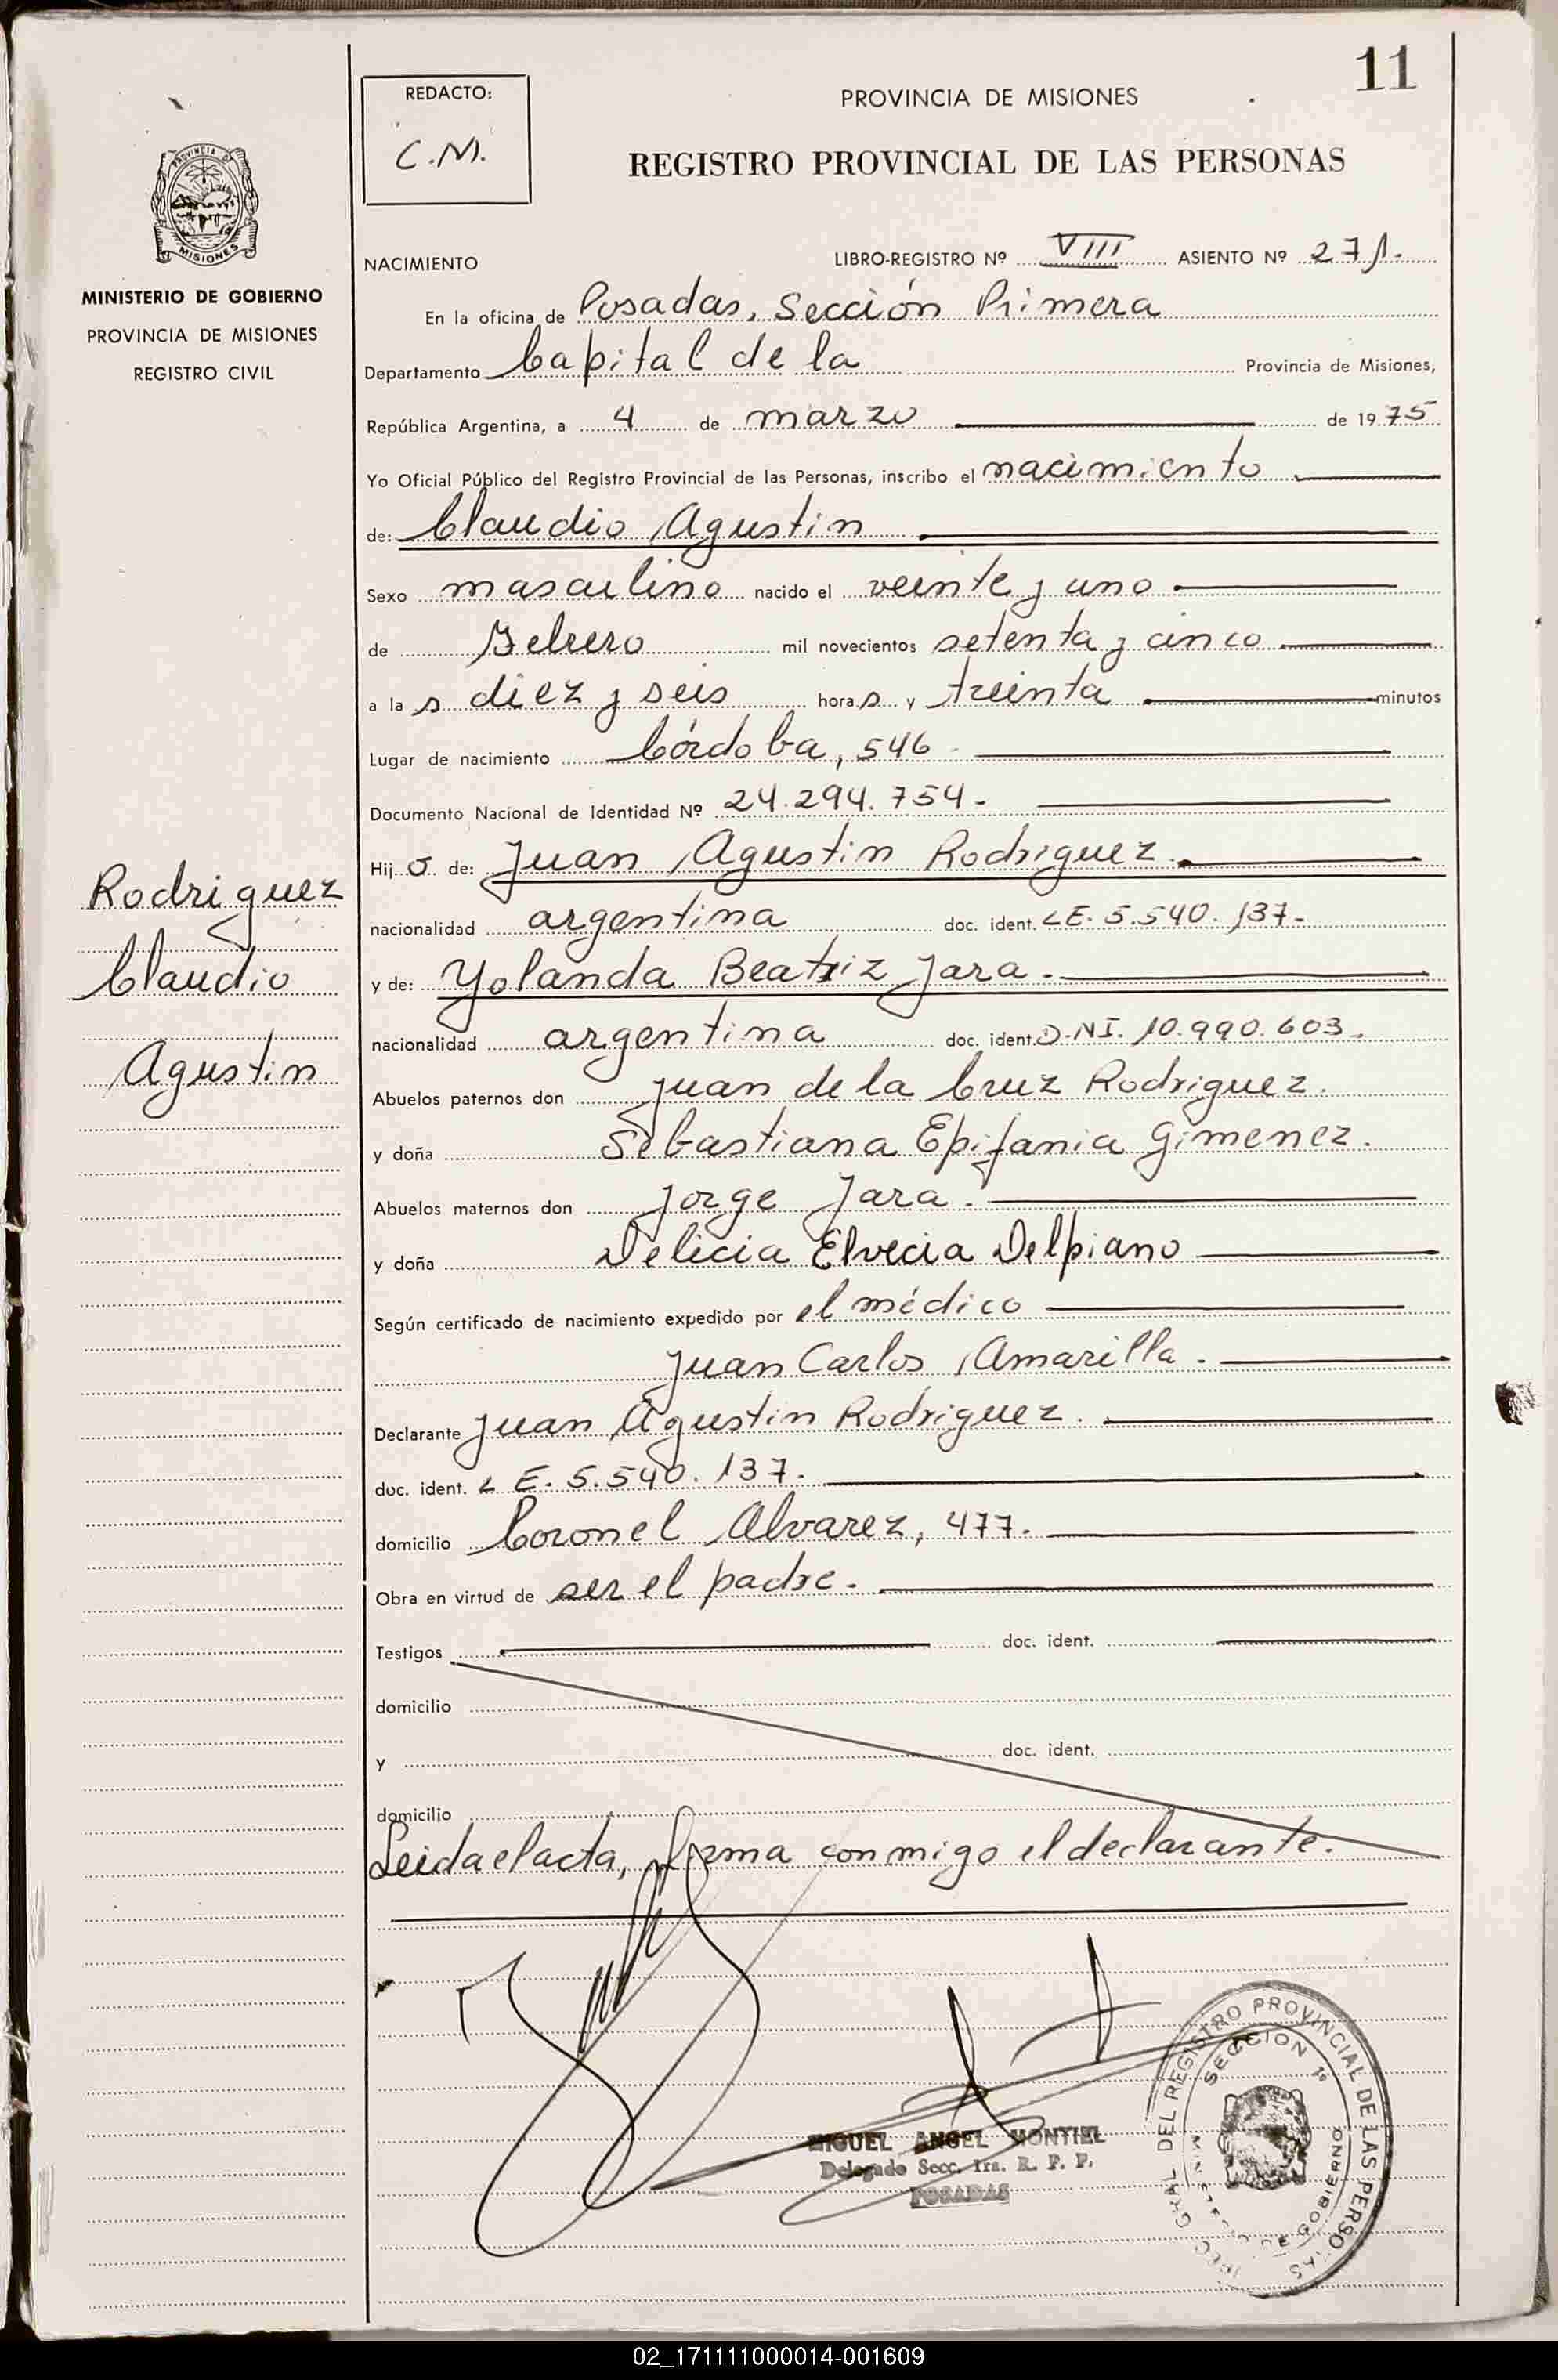 11
REDACTO:
C.M.
PROVINCIA DE MISIONES
REGISTRO PROVINCIAL DE LAS PERSONAS
PROVINCIA DE
MISIONES
MINISTERIO DE GOBIERNO
PROVINCIA DE MISIONES
REGISTRO CIVIL
NACIMIENTO LIBRO-REGISTRO Nº VIII ASIENTO Nº 271.
En la oficina de Posadas, Sección Primera
Departamento Capital de la Provincia de Misiones,
República Argentina, a 4 de marzo de 1975
Yo Oficial Público del Registro Provincial de las Personas, inscribo el nacimiento
de: Claudio Agustin
Sexo masculino nacido el veinte y uno
de Febrero mil novecientos setenta y cinco
a las diez y seis horas y treinta minutos
Lugar de nacimiento Córdoba, 546
Documento Nacional de Identidad Nº 24.294.754-
Hijo de: Juan Agustin Rodriguez
nacionalidad argentina doc. ident. LE. 5.540.137-
y de: Yolanda Beatriz Jara.
nacionalidad argentina doc. ident. D.NI. 10.990.603.
Abuelos paternos don Juan de la Cruz Rodriguez.
y doña Sebastiana Epifania Gimenez.
Abuelos maternos don Jorge Jara.
y doña Delicia Elvecia Delpiano
Según certificado de nacimiento expedido por el médico
Juan Carlos Amarilla.
Declarante Juan Agustin Rodriguez.
doc. ident. L E. 5.540.137.
domicilio Coronel Alvarez, 477.
Obra en virtud de ser el padre.
Testigos doc. ident.
domicilio
y doc. ident.
domicilio
Leida el acta, firma conmigo el declarante.
Rodriguez
Claudio
Agustin
MIGUEL ANGEL MONTIEL
Delegado Secc. 1ra. R. P. P.
POSADAS
GRAL DEL REGISTRO PROVINCIAL DE LAS PERSONAS
SECCION 1º
GOBIERNO
02_171111000014-001609